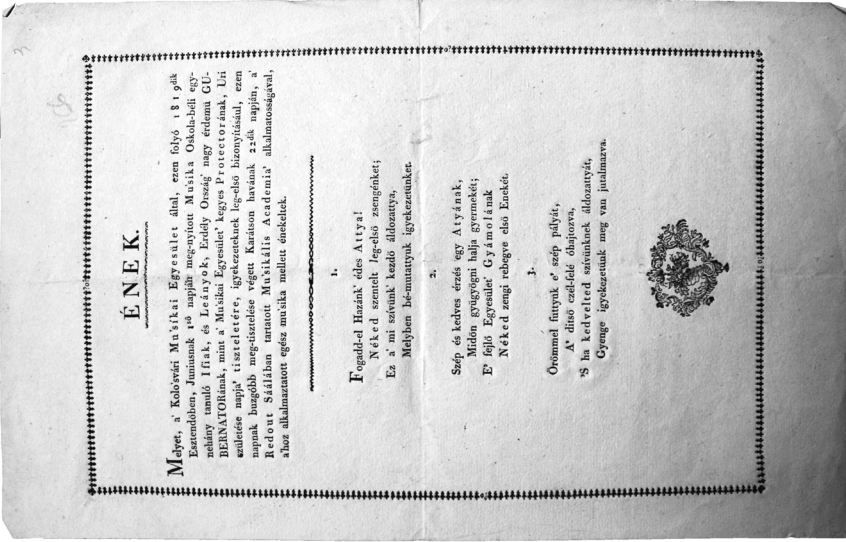 ÉNEK.
Melyet, a' Kolo'svári Mu'sikai Egyesület által, ezen folyó 1819dik
Esztendőben, Juniusnak 1ső napján meg-nyitott Mu'sika Oskola-béli egy-
nehány tanuló Ifiak, és Leányok, Erdély Ország' nagy érdemű GU-
BERNATORának, mint a' Mu'sikai Egyesület' kegyes Protectorának, Uri
születése napja' tiszteletére, igyekezeteknek leg-első bizonyításául, ezen
napnak buzgóbb meg-tisztelése végett Karátson havának 22dik napján, a'
Redout Sáálában tartatott Mu'sikális Academia' alkalmatosságával,
a'hoz alkalmaztatott egész mu'sika mellett énekeltek.
1.
Fogadd-el Hazánk' édes Attya!
Néked szentelt leg-első zsengénket;
Ez a' mi szívünk' kezdő áldozattya,
Melyben bé-mutattyuk igyekezetünket.
2.
Szép és kedves érzés egy Atyának,
Midőn gyügyögni halja gyermekét;
E' fejlő Egyesület' Gyámolának
Néked zengi rebegve első Enekét.
3.
Örömmel futtyuk e' szép pályát,
A' ditső czél-felé óhajtozva,
'S ha kedvelted szívünknek áldozattyát,
Gyenge igyekezetünk meg van jutalmazva.